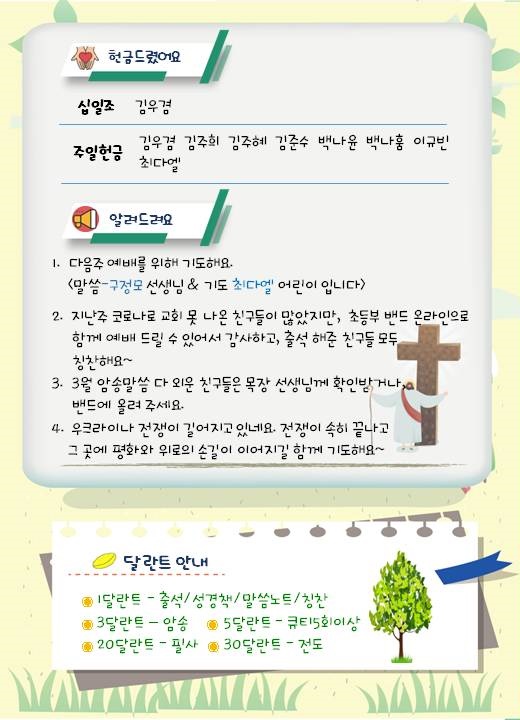 헌금드렸어요
십일조 김우겸
주일헌금 김우겸 김주희 김주혜 김준수 백나윤 백나훔 이규빈
최다엘
알려드려요
1. 다음주 예배를 위해 기도해요.
<말씀-구정모 선생님 & 기도 최다엘 어린이 입니다>
2. 지난주 코로나로 교회 못 나온 친구들이 많았지만, 초등부 밴드 온라인으로
함께 예배 드릴 수 있어서 감사하고, 출석 해준 친구들 모두
칭찬해요~
3. 3월 암송말씀 다 외운 친구들은 목장 선생님께 확인받거나,
밴드에 올려 주세요.
4. 우크라이나 전쟁이 길어지고있네요. 전쟁이 속히 끝나고
그 곳에 평화와 위로의 손길이 이어지길 함께 기도해요~
달란트 안내
1달란트 - 출석/성경책/말씀노트/칭찬
3달란트 – 암송 5달란트 - 큐티5회이상
20달란트 - 필사 30달란트 - 전도